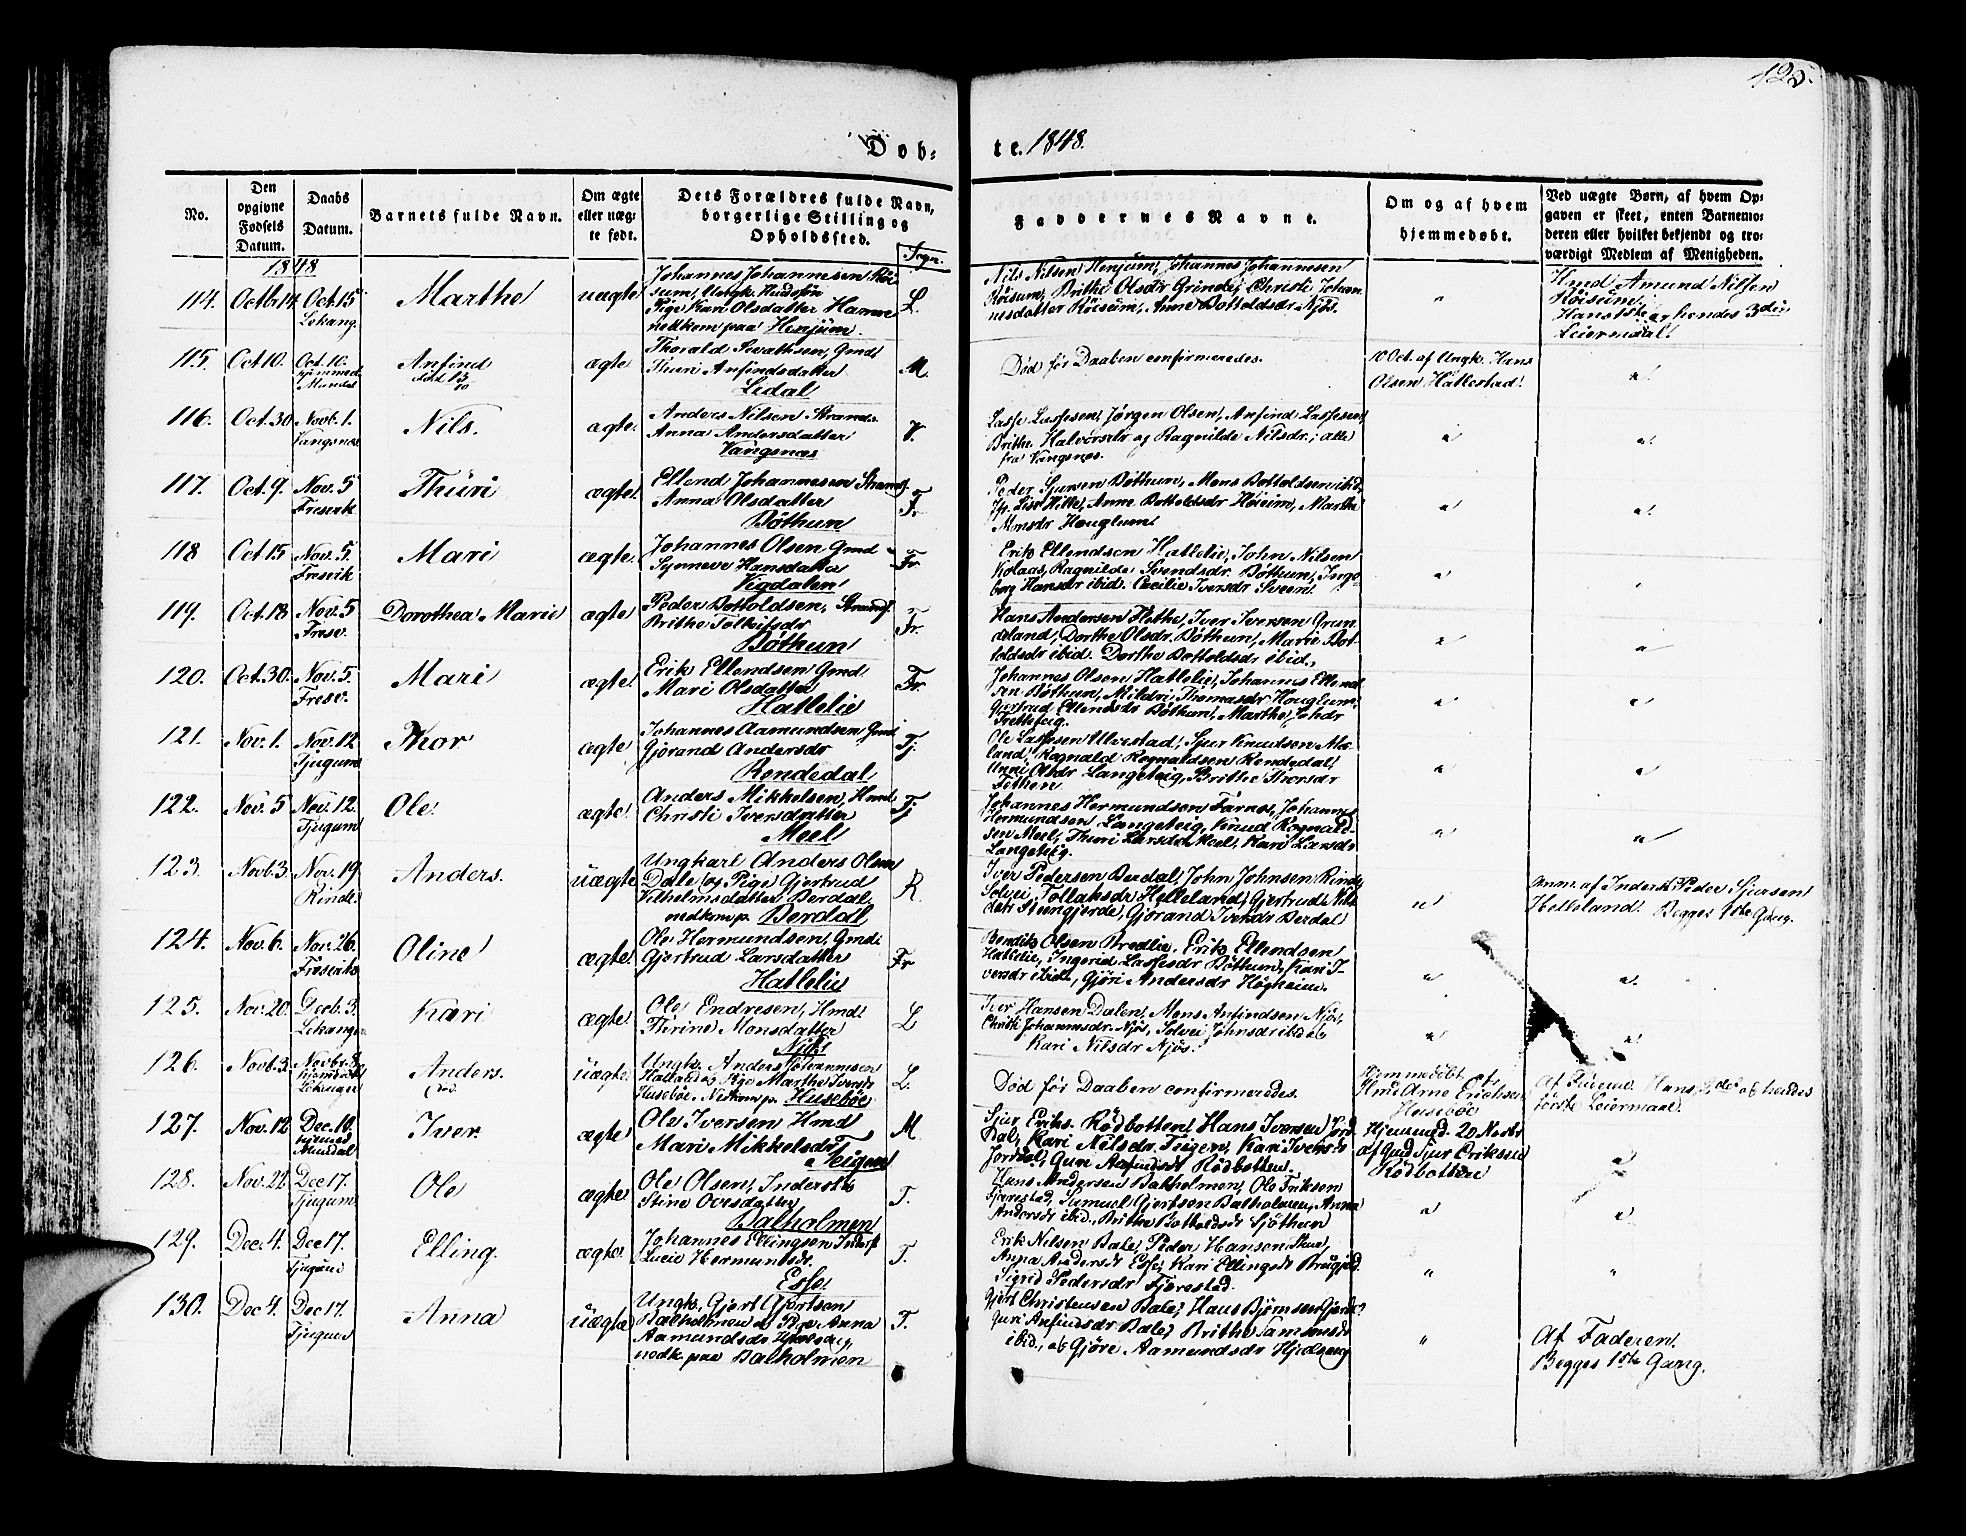 125.
Døb-
te. 1848.
No.
Den opgivne Fødsels Datum.
Daabs Datum.
Barnets fulde Navn.
Om ægte eller uægte født.
Dets Forældres fulde Navn, borgerlige Stilling og Opholdssted.
Sogn.
Faddernes Navne.
Om og af hvem hjemmedøbt.
Ved uægte Børn, af hvem Opgaven er skeet, enten Barnemoderen eller hvilket bekjendt og troværdigt Medlem af Menigheden.
1848
114. Octb. 14 Oct. 15 Lekang. Marthe uægte
Johannes Johannesen Röisum, Ungk. Huusfön
Pige Kari Olsdatter Hamre
nedkom paa Henjum. L.
Nils Nilsen Henjum, Johannes Johannesen
Röisum, Brithe Olsdr Grinde, Christi Johannesdatter Röisum, Anne Botoldsdr Njøs.
"
Hmd Amund Nilsen
Röisum.
Hans 1ste, hendes 3die
Leiermaal.
115. Oct. 10. Oct. 10. hjemmed. Mundal Anfind død 13/10 ægte
Thorald Sivathsen, Gmd
Thuri Anfindsdatter
Lidal M.
Død før Daaben confirmeredes.
10 Oct. af Ungk. Hans
Olsen Hatlestad.
"
116. Oct. 30 Novb. 1. Vangsnæs Nils. ægte
Anders Nilsen Strands.
Anna Andersdatter
Vangsnæs V.
Lasse Lassesen, Jørgen Olsen, Anfind Lassesen,
Brithe Halvorsdr og Ragnilde Nilsdr.; alle
fra Vangsnæs.
" "
117. Oct. 9. Nov. 5 Fresvik Thüri ægte
Ellend Johannesen Strands.
Anna Olsdatter
Böthun Fr.
Peder Sjursen Böthun, Mons Botoldsen ibid.
Jfr. Lise Hille, Anne Botoldsdr Høieim, Marthe
Monsdr Houglum
" "
118 Oct. 15 Nov. 5. Fresvik Mari ægte
Johannes Olsen Gmd
Synneve Hansdatter
Vigdalen Fr.
Erik Ellendsen Hatlelie, John Nilsen
Kolaas, Ragnilde Svendsdr. Böthun, Ingeborg Hansdr ibid. Cecilie Iversdr Sveen.
" "
119. Oct. 18 Nov. 5 Fresv. Dorothea Marie ægte
Peder Botoldsen, Strands.
Brithe Tolleifsdr
Böthun Fr.
Hans Andersen Hethe, Iver Iversen Grundeland, Dorthe Olsdr. Böthun, Marie Botoldsdr ibid. Dorthe Botoldsdr ibid.,
" "
120. Oct. 30. Nov. 5. Fresv. Mari ægte
Erik Ellendsen Gmd
Mari Olsdatter
Hatlelie Fr.
Johannes Olsen Hatlelie, Johannes Ellendsen Böthun, Mildri Thomasdr Houglum
Gjertrud Ellendsdr Böthun, Marthe Johdr
Tretteteig.
" "
121. Nov. 1. Nov. 12 Tjugum Thor ægte
Johannes Aamundsen Gmd
Gjørand Andersdr
Rendedal Tj.
Ole Lassesen Ulvestad, Sjur Knudsen Meland, Rognald Rognaldsen Rendedal,
Anni Olsdr Langeteig, Brithe Thorsdr
Fetten.
" "
122. Nov. 5 Nov. 12. Tjugum Ole ægte
Anders Mikkelsen, Hmd
Christi Iversdatter
Meel Tj.
Johannes Hermundsen Farnes, Johannes
Hermundsen Langeteig, Knud Rognaldsen Meel, Thuri Larsdr Meel, Kari Larsdr
Langeteig.
" "
123. Novb. 3 Nov. 19. Rinde Anders. uægte
Ungkarl Anders Olsen
Dale og Pige Gjertrud
Vilhelmsdatter Berdal
nedkom p. Berdal R.
Iver Pedersen Berdal, John Johnsen Rinde
Solvei Tollaksdr Helleland, Gjertrud Nilsdatr Stengjerde, Gjørand Iversdr Berdal
"
Anm. af Inderst Peder Sjursen
Helleland. Begges 1ste Gang.
124. Nov. 6. Nov. 26. Fresvik Oline ægte
Ole Hermundsen, Gmd
Gjertrud Larsdatter
Hatlelie Fr
Bendik Olsen Bredlie, Erik Ellendsen
Hatlelie, Ingerid Lassesdr Böthun, Kari Iversdr ibid, Gjøri Andersdr Høgheim.
" "
125. Nov. 20. Decb. 3. Lekanger Kari ægte
Ole Endresen, Hmd
Thrine Monsdatter
Njøs L
Iver Hansen Dalen, Mons Anfindsen Njøs,
Christi Johannesdr. Njøs, Solvei Johnsdr ibid og
Kari Nilsdr Njøs.
" "
126. Novb. 3. Novbr. hjemmedt Lekanger Anders. død. uægte
Ungk. Anders Johannesen
Hatland og Pige Marthe Iversdr
Husebøe. Nedkom p. Husebøe L.
Død før Daaben confirmeredes.
Hjemmedöbt
Hmd Arne Erichsen
Husebøe
Hans 2det og hendes
første Leiermaal.
127. Nov. 12 Dec. 10. hjemmed Mundal Iver. ægte
Ole Iversen Hmd
Mari Mikkelsdr
Teigen M
Sjur Eriks. Rödbotten, Hans Iversen Jordal, Kari Nilsdr Teigen, Kari Iversdr
Jordal, Guri Anfindsdr Rödbotten.
Hjemmed. 20 Novbr
af Gmd Sjur Eriksen
Rödbotten
"
128. Nov. 22. Dec 17. Tjugum Ole ægte
Ole Olsen, Inderst
Stine Ovesdatter
Balholmen T.
Hans Andersen Balholmen, Ole Eriksen
Fjærestad, Samuel Gjertsen Balholmen, Anna
Andersdr ibid., Brithe Botoldsdr Sjøthun
" "
129. Dec. 4. Dec 17. Tjugum Elling. ægte.
Johannes Ellingsen Inderst
Lucie Hermundsdr.
Esse. T.
Erik Nilsen Bale, Peder Hansen
Anna Andersdr Esse, Kari Ellingsdr
Sigrid Pedersdr Fjærestad.
" "
130. Dec 4. Dec 17. Tjugum Anna uægte
Ungk. Gjert Gjertsen
Balholmen og Pige Anna
Aamundsdr
nedk. paa Balholmen T.
Gjert Christensen Bale, Hans Bjørnsen
Guri Anfindsdr Bale, Brithe Samsonsdr
ibid., og Gjøre Aamundsdr
"
Af Faderen.
Begges 1ste Gang.